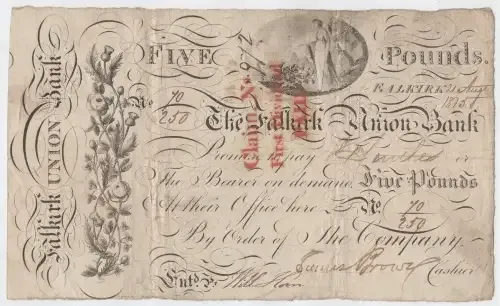 Falkirk UNION Bank
FIVE Pounds.
FALKIRK
No 70/250
The Falkirk Union Bank
Promise to pay or
The Bearer on demand Five Pounds
At their Office here No 70/250
By Order of The Company.
Entd Cashier
Claim No 912
First Dividend